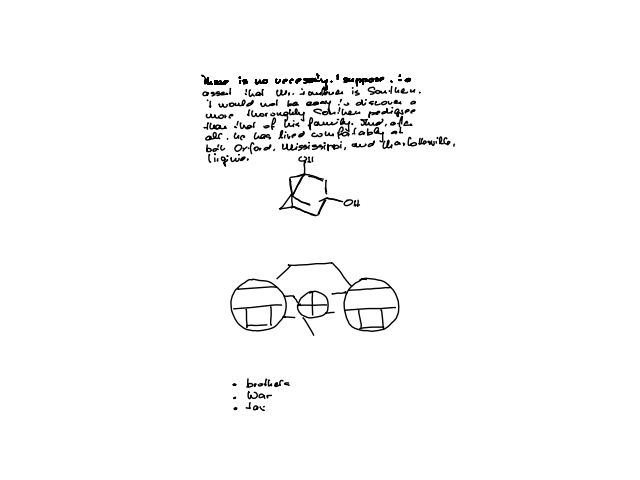 There is no necessity, I suppose, to
assert that Mr. Faulkner is Southern.
It would not be easy to discover a
more thoroughly Southern pedigree
than that of his family. And, after
all, he has lived comfortably at
both Oxford, Mississippi, and Charlottesville,
Virginia.
OH
OH
• brothers
• War